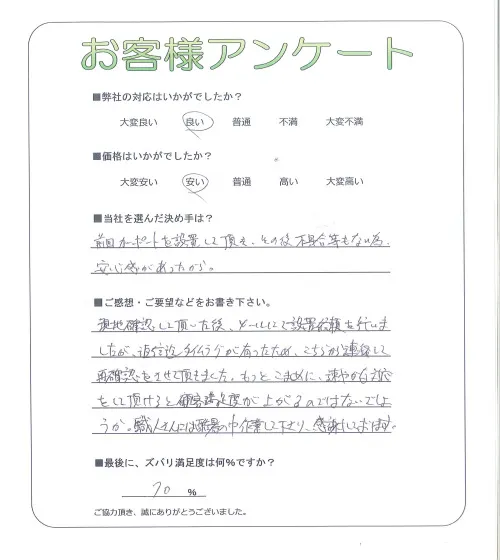 お客様アンケート
■弊社の対応はいかがでしたか？
大変良い 良い 普通 不満 大変不満
■価格はいかがでしたか？
大変安い 安い 普通 高い 大変高い
■当社を選んだ決め手は？
前回カーポートを設置して頂き、その後不具合等もない為、
安心感があったから。
■ご感想・ご要望などをお書き下さい。
現地確認して頂いた後、メールにて設置依頼を行いま
したが、返信迄タイムラグが有ったため、こちらから連絡して
再確認をさせて頂きました。もっとこまめに、速やかな対応
をして頂けると顧客満足度が上がるのではないでしょ
うか。職人さんには酷暑の中作業して下さり、感謝しております。
■最後に、ズバリ満足度は何％ですか？
70 ％
ご協力頂き、誠にありがとうございました。